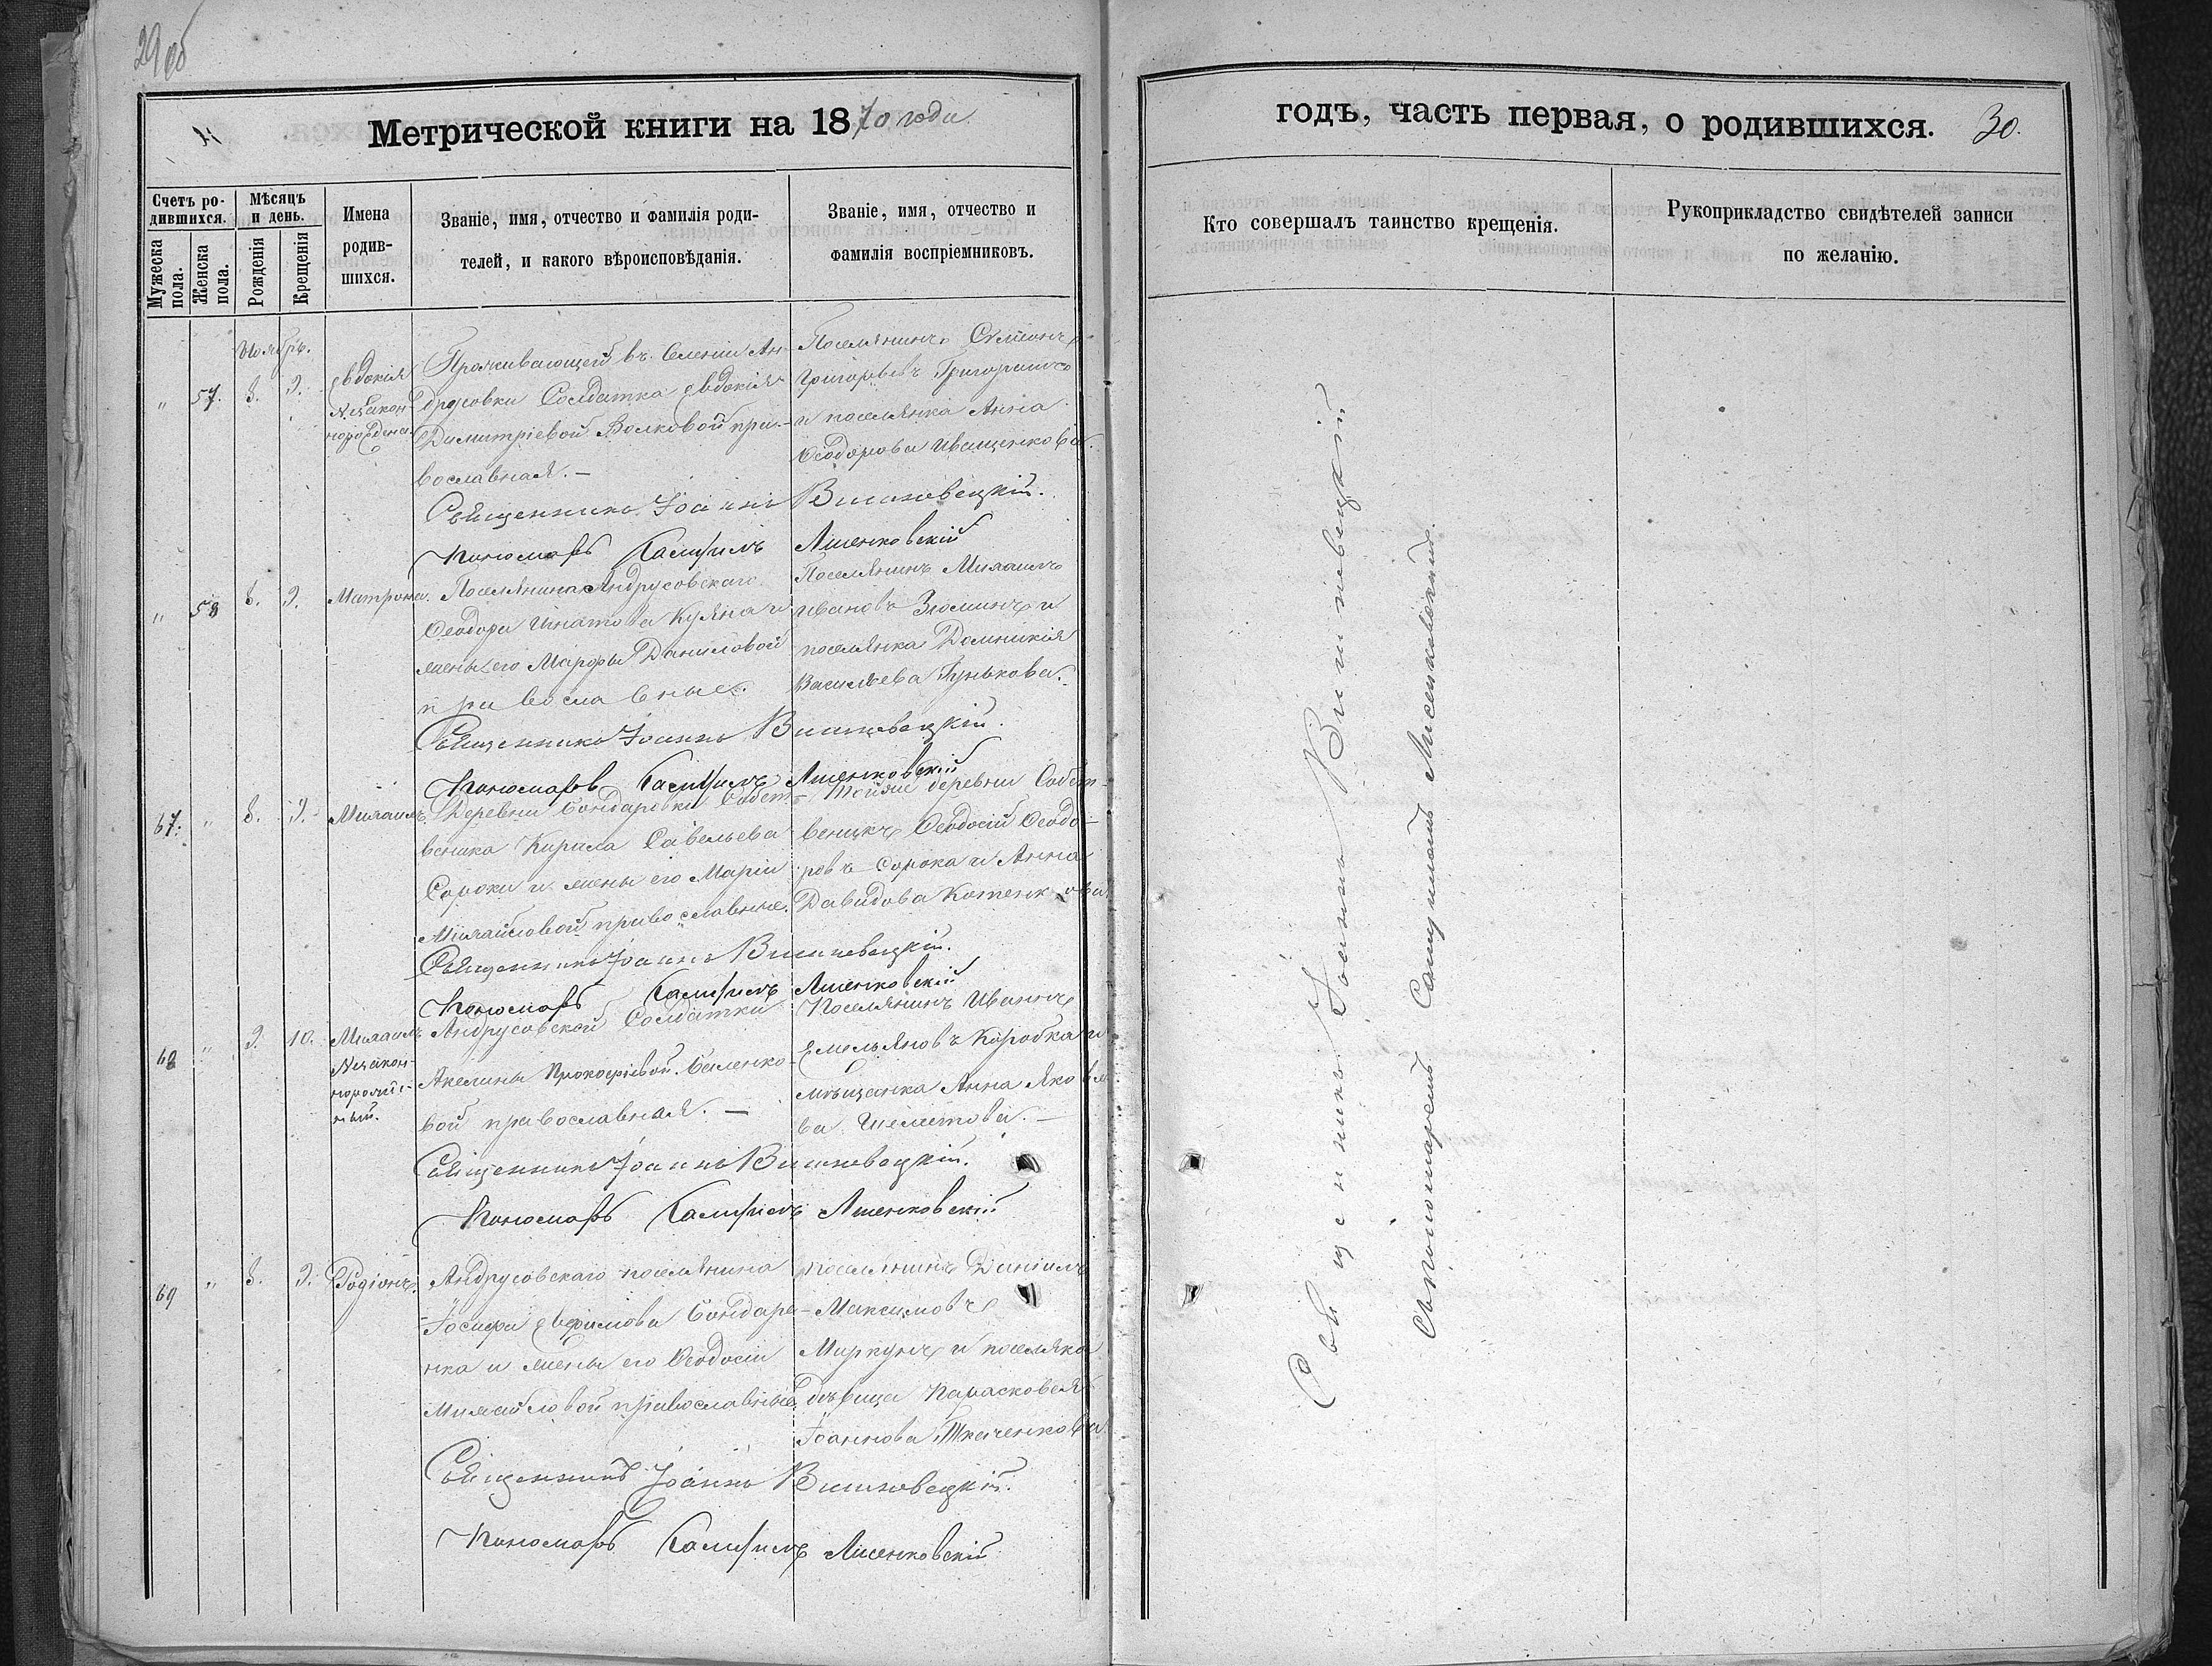 29 об
Метрической книги на 1870 года
Счетъ ро-
дившихся.
Мѣсяцъ
и день.
Мужеска
пола.
Женска
пола.
Рожденія
Крещенія
Имена
родив-
шихся.
Званіе, имя, отчество и фамилія роди-
телей, и какого вѣроисповѣданія.
Званіе, имя, отчество и
фамилія воспріемниковъ.
Ноябрь.
" 57. 8. 9.
Евдокія
Незакон-
норожденная
Проживающей въ Селеніи Ан-
друсовки Солдатка Евдокія
Димитріевой Волковой пра-
вославная. —
Поселянинъ Симеонъ
Григорьевъ
и поселянка Анна
Ѳеодорова Иващенкова.
Священникъ Іоаннъ Вишневецкій.
Пономарь Сампсилъ Лисенковскій
" 58 8. 9.
Матрона.
Поселянина Андрусовскаго
Ѳеодора Игнатова и
жены его Марфы Даниловой
православные.
Поселянинъ Михаилъ
Ивановъ Зюминъ и
поселянка Домникія
Васильева Гунькова.
Священникъ Іоаннъ Вишневецкій.
Пономарь Сампсилъ Лисенковскій
67. " 8. 9.
Михаилъ.
Деревни Бондаревки Собст-
веника Кирила Савельева
Сороки и жены его Маріи
Михайловой православные.
Тойже деревни Собст-
веникъ Ѳеодосій Ѳеодо-
ровъ Сорока и Анна
Давидова Котенкова.
Священникъ Іоаннъ Вишневецкій.
Пономарь Сампсилъ Лисенковскій
68 " 9. 10.
Михаилъ
Незакон-
норожден-
ный.
Андрусовской Солдатки
Акелины Прокофіевой Беленко-
вой православная. —
Поселянинъ Иванъ
Емельяновъ Коробка и
мѣщанка Анна Яковле-
ва Шелестова. —
Священникъ Іоаннъ Вишневецкій.
Пономарь Сампсилъ Лисенковскій
69 " 8. 9.
Родіонъ.
Андрусовскаго поселянина
Іосифа Ефимова Бондаре-
нка и жены его Ѳеодосіи
Михайловой православные
поселянинъ Даніилъ
Максимовъ
Миркунъ и поселянка
дѣвица Парасковея
Іоаннова Ткаченкова
Священникъ Іоаннъ Вишневецкій.
Пономарь Сампсилъ Лисенковскій
годъ, часть первая, о родившихся. 30.
Кто совершалъ таинство крещенія.
Рукоприкладство свидѣтелей записи
по желанію.
Священникъ Іоаннъ Вишневецкій
Съ пономаремъ Сампсиломъ Лисенковскимъ.